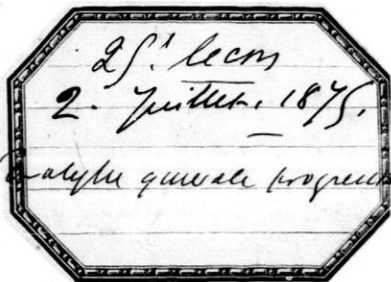 25.e leçon
2. Juillet. 1875.
Paralysie générale progressive